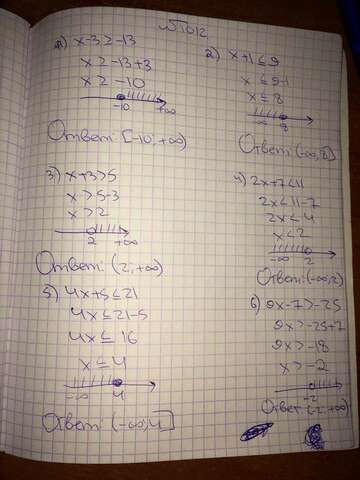 №1012
1) x-3≥-13
x≥-13+3
x≥-10
-10 +∞
Ответ: [-10; +∞)
2) x+1≤9
x≤9-1
x≤8
-∞ 8
Ответ: (-∞; 8]
3) x+3>5
x>5-3
x>2
2 +∞
Ответ: (2; +∞)
4) 2x+7<11
2x<11-7
2x<4
x<2
-∞ 2
Ответ: (-∞; 2)
5) 4x+5≤21
4x≤21-5
4x≤16
x≤4
-∞ 4
Ответ: (-∞; 4]
6) 9x-7>-25
9x>-25+7
9x>-18
x>-2
-2
Ответ: (-2; +∞)